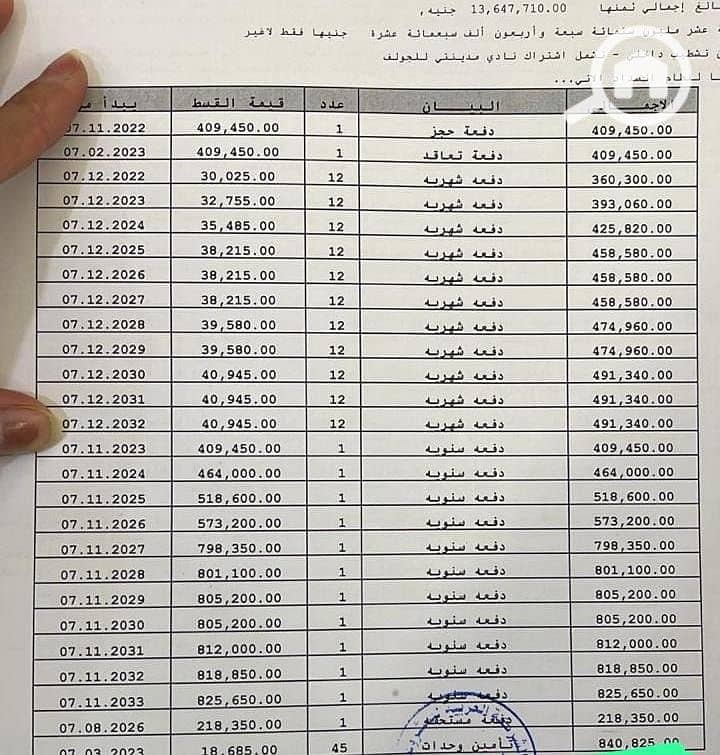 إجمالي ثمنها 13,647,710.00 جنيه,
عشر مليون ستمائة سبعة وأربعون ألف سبعمائة عشرة جنيها فقط لاغير
اشتراك نادي مدينتي للجولف
عدد قيمة القسط يبدأ البيان
409,450.00 دفعة حجز 1 409,450.00 07.11.2022
409,450.00 دفعة تعاقد 1 409,450.00 07.02.2023
360,300.00 دفعه شهريه 12 30,025.00 07.12.2022
393,060.00 دفعه شهريه 12 32,755.00 07.12.2023
425,820.00 دفعه شهريه 12 35,485.00 07.12.2024
458,580.00 دفعه شهريه 12 38,215.00 07.12.2025
458,580.00 دفعه شهريه 12 38,215.00 07.12.2026
458,580.00 دفعه شهريه 12 38,215.00 07.12.2027
474,960.00 دفعه شهريه 12 39,580.00 07.12.2028
474,960.00 دفعه شهريه 12 39,580.00 07.12.2029
491,340.00 دفعه شهريه 12 40,945.00 07.12.2030
491,340.00 دفعه شهريه 12 40,945.00 07.12.2031
491,340.00 دفعه شهريه 12 40,945.00 07.12.2032
409,450.00 دفعه سنويه 1 409,450.00 07.11.2023
464,000.00 دفعه سنويه 1 464,000.00 07.11.2024
518,600.00 دفعه سنويه 1 518,600.00 07.11.2025
573,200.00 دفعه سنويه 1 573,200.00 07.11.2026
798,350.00 دفعه سنويه 1 798,350.00 07.11.2027
801,100.00 دفعه سنويه 1 801,100.00 07.11.2028
805,200.00 دفعه سنويه 1 805,200.00 07.11.2029
805,200.00 دفعه سنويه 1 805,200.00 07.11.2030
812,000.00 دفعه سنويه 1 812,000.00 07.11.2031
818,850.00 دفعه سنويه 1 818,850.00 07.11.2032
825,650.00 دفعه سنويه 1 825,650.00 07.11.2033
218,350.00 دفعة 1 218,350.00 07.08.2026
840,825.00 تأمين وحدات 45 18,685.00 07.03.2023